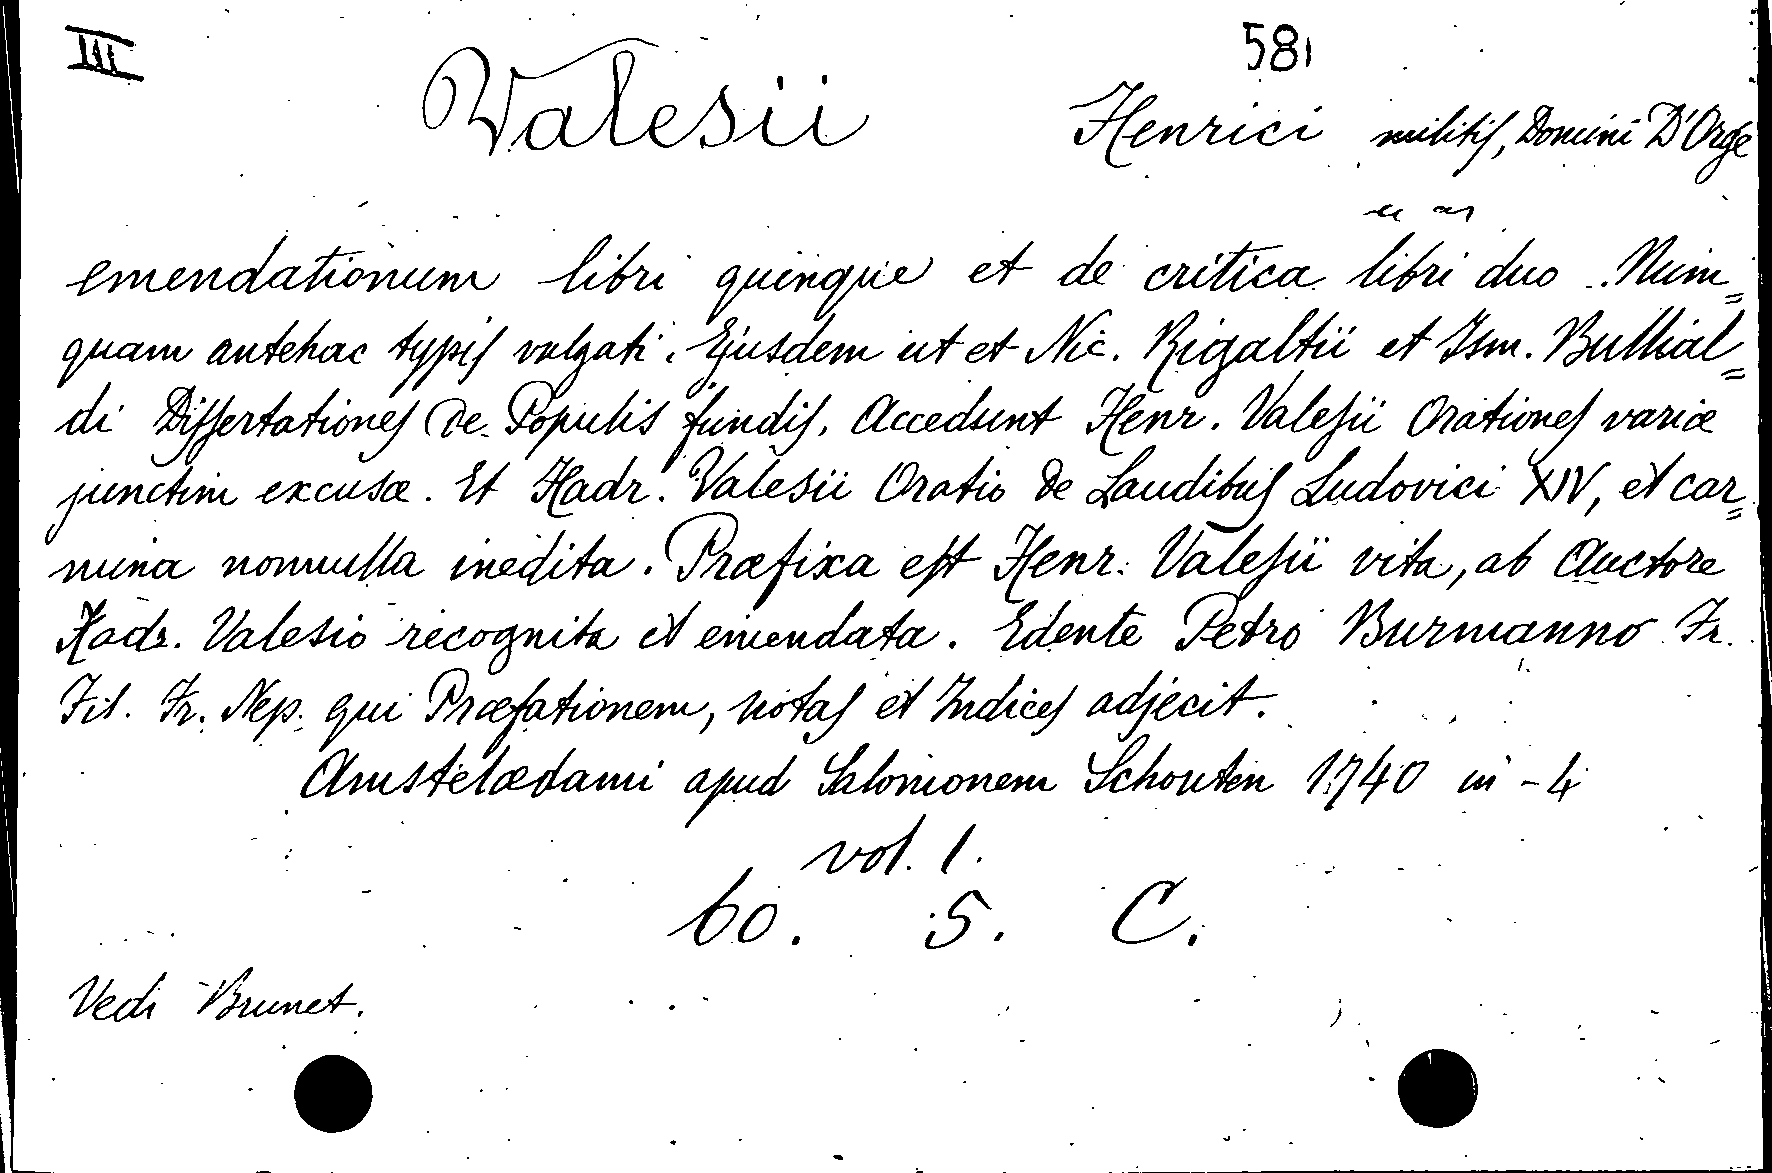 III
581
Valesii Henrici militis, Domini D'Orge
emendationum libri quinque et de critica libri duo. Num=
quam antehac typis volgati. Ejusdem ut et Nic. Rigaltii et Ism. Bullial=
di Dissertationes de Populis fundis. Accedunt Henr. Valesii Orationes variæ
junctim excusæ. Et Hadr. Valesii Oratio de Laudibus Ludovici XIV, et car=
mina nonnulla inedita. Præfixa est Henr. Valesii vita, ab Auctore
Hadr. Valesio recognita et emendata. Edente Petro Burmanno Fr.
Fil. Fr. Nep. qui Præfationem, notas et Indices adjecit.
Amstelædami apud Salomonem Schouten 1740 in-4
vol. 1.
60. 5. C.
Vedi Brunet.